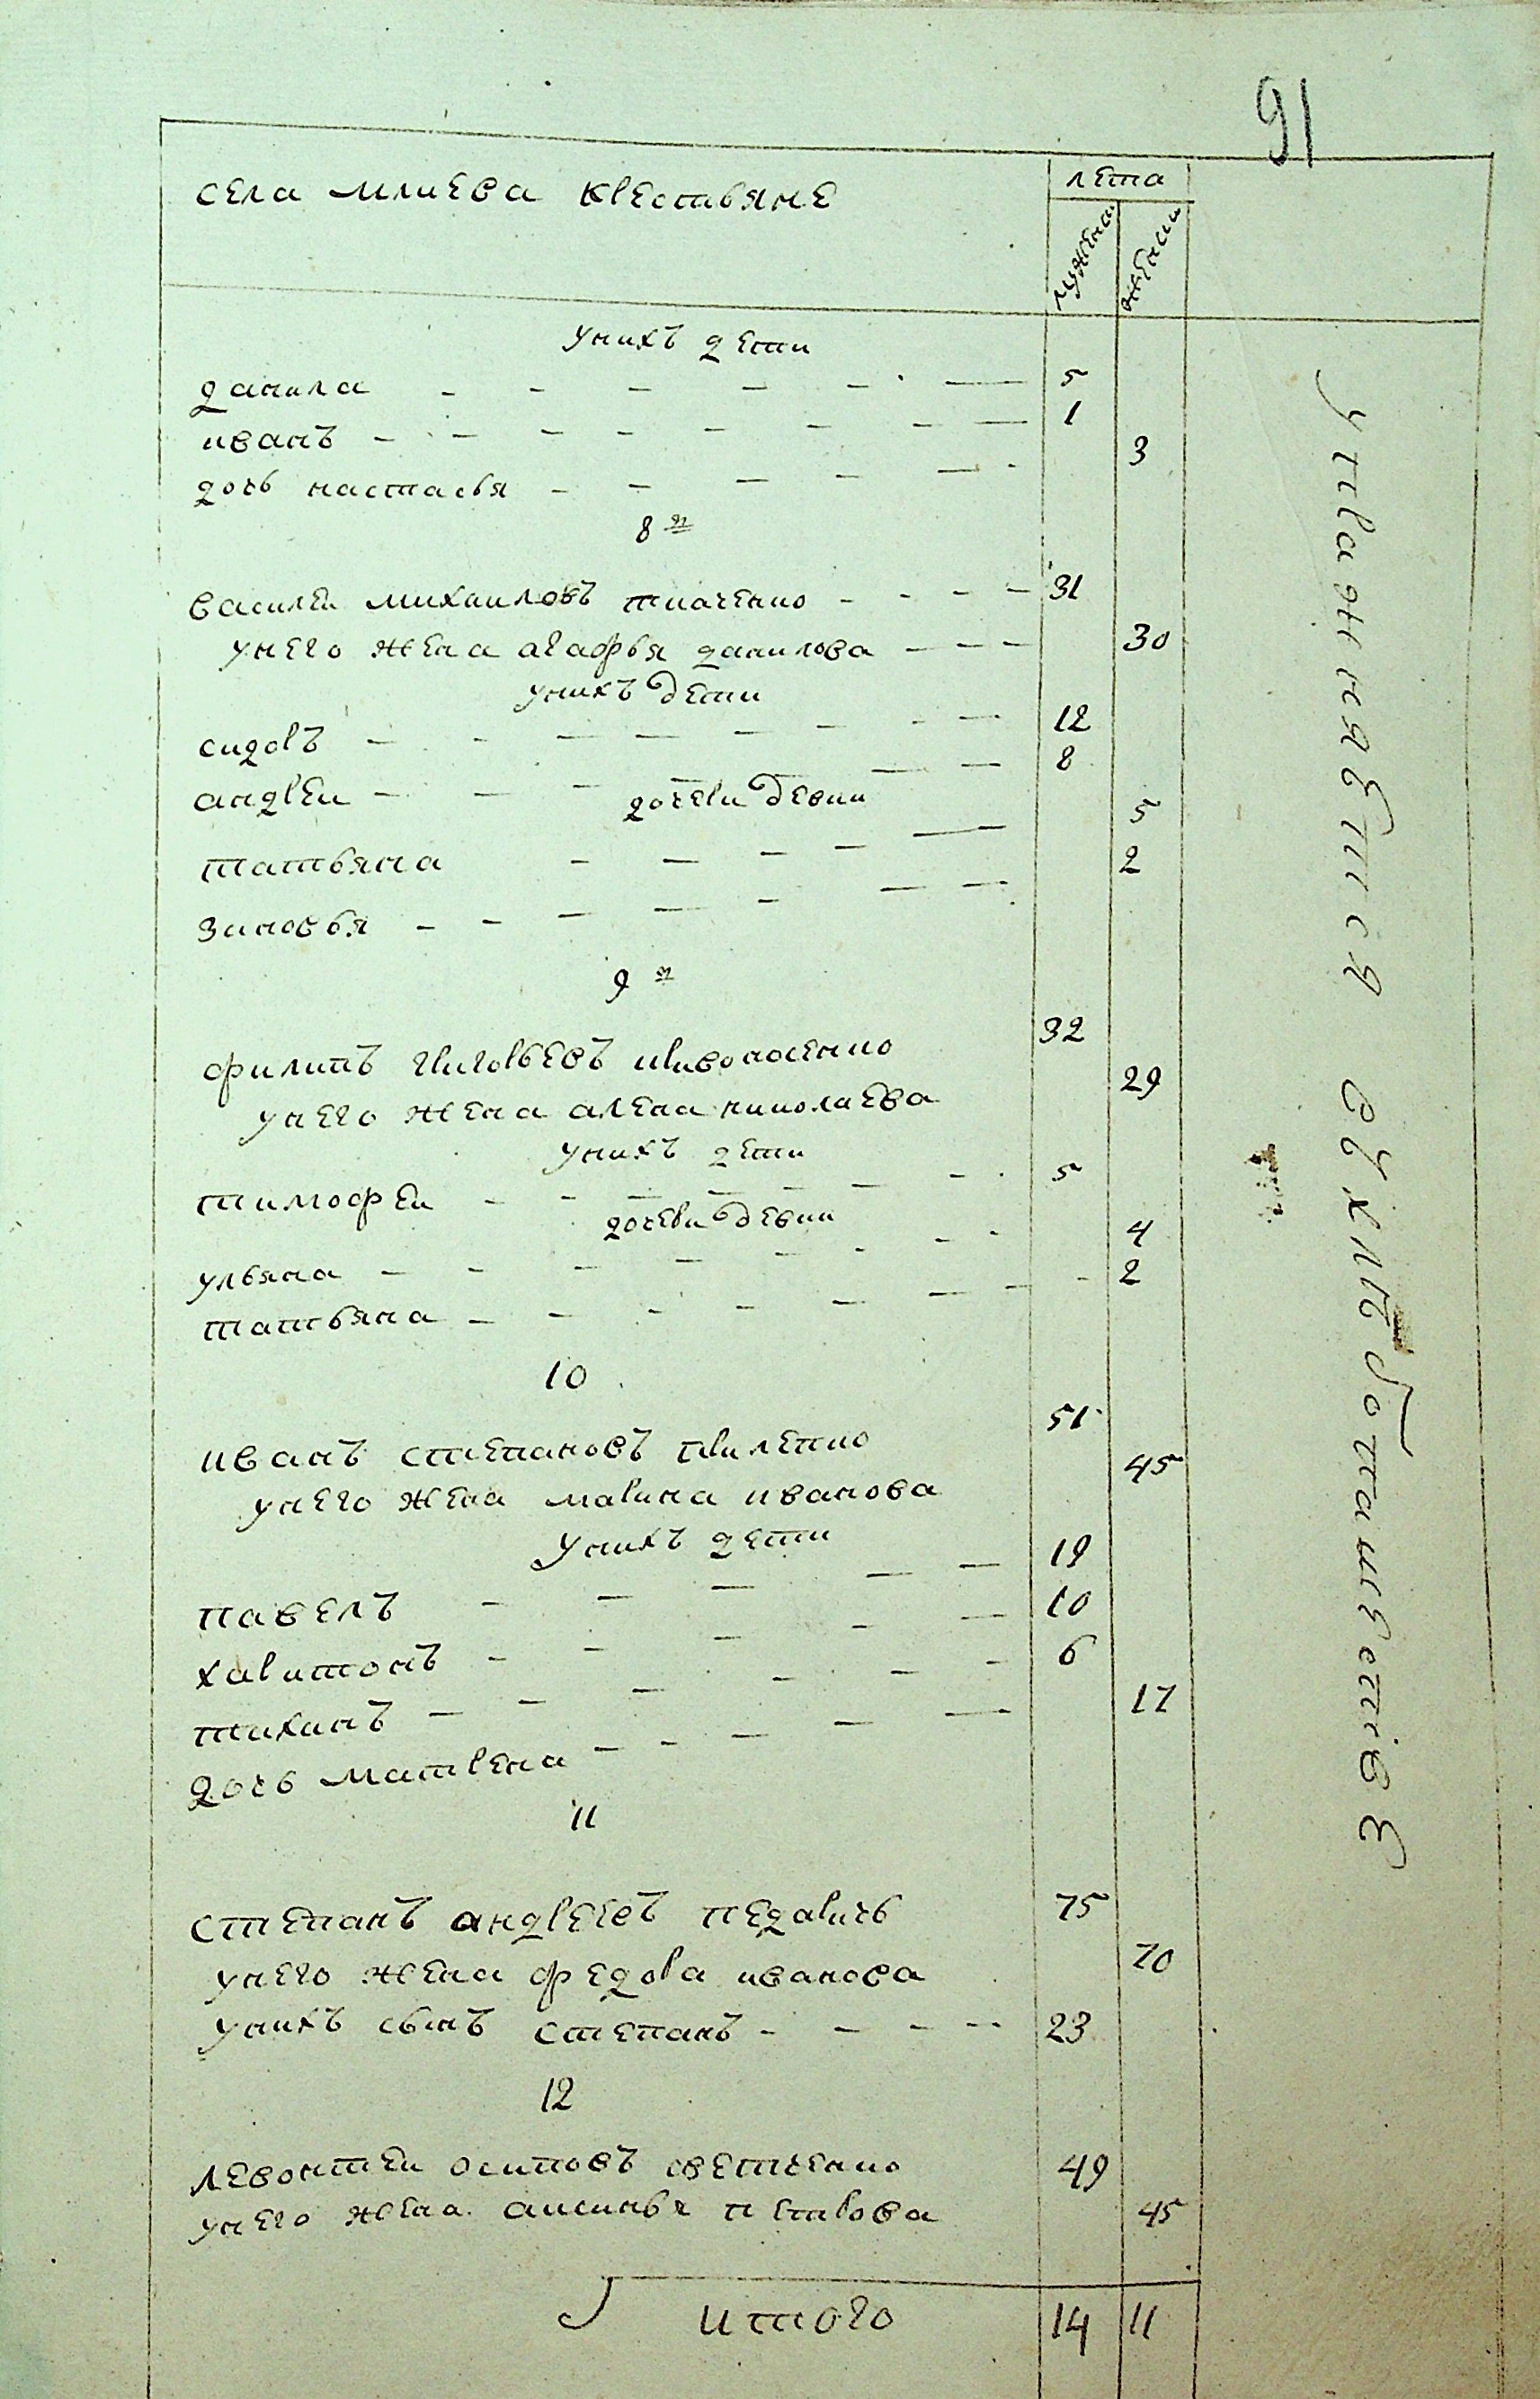 91
села млиева крестьяне
лета
мужеска
женски
унихъ дети
данила 5
иванъ 1
дочь настасья 3
8 й
василеи михаиловъ ткаченко 31
унего жена агафья данилова 30
унихъ дети
сидоръ 12
андреи 8
дочери девки
татьяна 5
зиновья 2
9 й
филипъ григорьевъ кривоносенко 32
унего жена алена николаева 29
унихъ дети
тимофеи 5
дочери девки
ульяна 4
татьяна 2
10
иванъ степановъ 51
унего жена марина иванова 45
унихъ дети
павелъ 19
харитонъ 10
тихинъ 6
дочь матрена 17
11
степанъ андреевъ 75
унего жена федора иванова 70
унихъ сынъ степанъ 23
12
левонтеи осиповъ 49
унего жена аксинья петрова 45
итого 14 11
упражняется